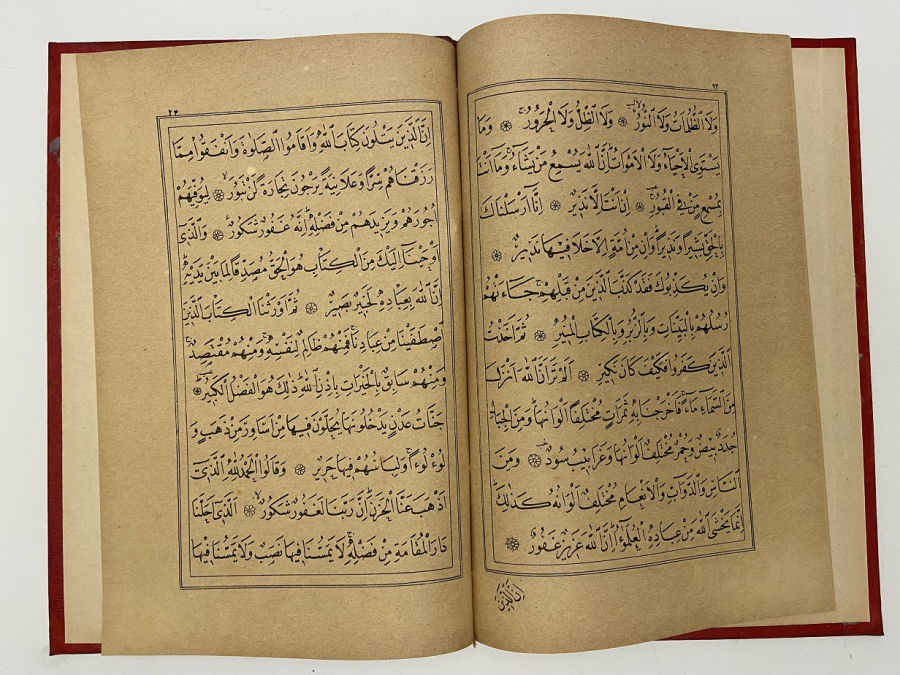 ٢٣
وَلَا الظُّلُمَاتُ وَلَا النُّورُ ۞ وَلَا الظِّلُّ وَلَا الْحَرُورُ ۞ وَمَا
يَسْتَوِى الْاَحْيَاءُ وَلَا الْاَمْوَاتُ اِنَّ اللّٰهَ يُسْمِعُ مَنْ يَشَاءُ وَمَا اَنْتَ
بِمُسْمِعٍ مَنْ فِى الْقُبُورِ ۞ اِنْ اَنْتَ اِلَّا نَذِيرٌ ۞ اِنَّا اَرْسَلْنَاكَ
بِالْحَقِّ بَشِيرًا وَنَذِيرًا وَاِنْ مِنْ اُمَّةٍ اِلَّا خَلَا فِيهَا نَذِيرٌ ۞
وَاِنْ يُكَذِّبُوكَ فَقَدْ كَذَّبَ الَّذِينَ مِنْ قَبْلِهِمْ جَاءَتْهُمْ
رُسُلُهُمْ بِالْبَيِّنَاتِ وَبِالزُّبُرِ وَبِالْكِتَابِ الْمُنِيرِ ۞ ثُمَّ اَخَذْتُ
الَّذِينَ كَفَرُوا فَكَيْفَ كَانَ نَكِيرِ ۞ اَلَمْ تَرَ اَنَّ اللّٰهَ اَنْزَلَ
مِنَ السَّمَاءِ مَاءً فَاَخْرَجْنَا بِهِ ثَمَرَاتٍ مُخْتَلِفًا اَلْوَانُهَا وَمِنَ الْجِبَالِ
جُدَدٌ بِيضٌ وَحُمْرٌ مُخْتَلِفٌ اَلْوَانُهَا وَغَرَابِيبُ سُودٌ ۞ وَمِنَ
النَّاسِ وَالدَّوَابِّ وَالْاَنْعَامِ مُخْتَلِفٌ اَلْوَانُهُ كَذٰلِكَ
اِنَّمَا يَخْشَى اللّٰهَ مِنْ عِبَادِهِ الْعُلَمٰٓؤُا اِنَّ اللّٰهَ عَزِيزٌ غَفُورٌ ۞
اِنَّ الَّذِينَ
٢٤
اِنَّ الَّذِينَ يَتْلُونَ كِتَابَ اللّٰهِ وَاَقَامُوا الصَّلٰوةَ وَاَنْفَقُوا مِمَّا
رَزَقْنَاهُمْ سِرًّا وَعَلَانِيَةً يَرْجُونَ تِجَارَةً لَنْ تَبُورَ ۞ لِيُوَفِّيَهُمْ
اُجُورَهُمْ وَيَزِيدَهُمْ مِنْ فَضْلِهِ اِنَّهُ غَفُورٌ شَكُورٌ ۞ وَالَّذِى
اَوْحَيْنَا اِلَيْكَ مِنَ الْكِتَابِ هُوَ الْحَقُّ مُصَدِّقًا لِمَا بَيْنَ يَدَيْهِ
اِنَّ اللّٰهَ بِعِبَادِهِ لَخَبِيرٌ بَصِيرٌ ۞ ثُمَّ اَوْرَثْنَا الْكِتَابَ الَّذِينَ
اصْطَفَيْنَا مِنْ عِبَادِنَا فَمِنْهُمْ ظَالِمٌ لِنَفْسِهِ وَمِنْهُمْ مُقْتَصِدٌ
وَمِنْهُمْ سَابِقٌ بِالْخَيْرَاتِ بِاِذْنِ اللّٰهِ ذٰلِكَ هُوَ الْفَضْلُ الْكَبِيرُ ۞
جَنَّاتُ عَدْنٍ يَدْخُلُونَهَا يُحَلَّوْنَ فِيهَا مِنْ اَسَاوِرَ مِنْ ذَهَبٍ وَ
لُؤْلُؤًا وَلِبَاسُهُمْ فِيهَا حَرِيرٌ ۞ وَقَالُوا الْحَمْدُ لِلّٰهِ الَّذِى
اَذْهَبَ عَنَّا الْحَزَنَ اِنَّ رَبَّنَا لَغَفُورٌ شَكُورٌ ۞ اَلَّذِى اَحَلَّنَا
دَارَ الْمُقَامَةِ مِنْ فَضْلِهِ لَا يَمَسُّنَا فِيهَا نَصَبٌ وَلَا يَمَسُّنَا فِيهَا